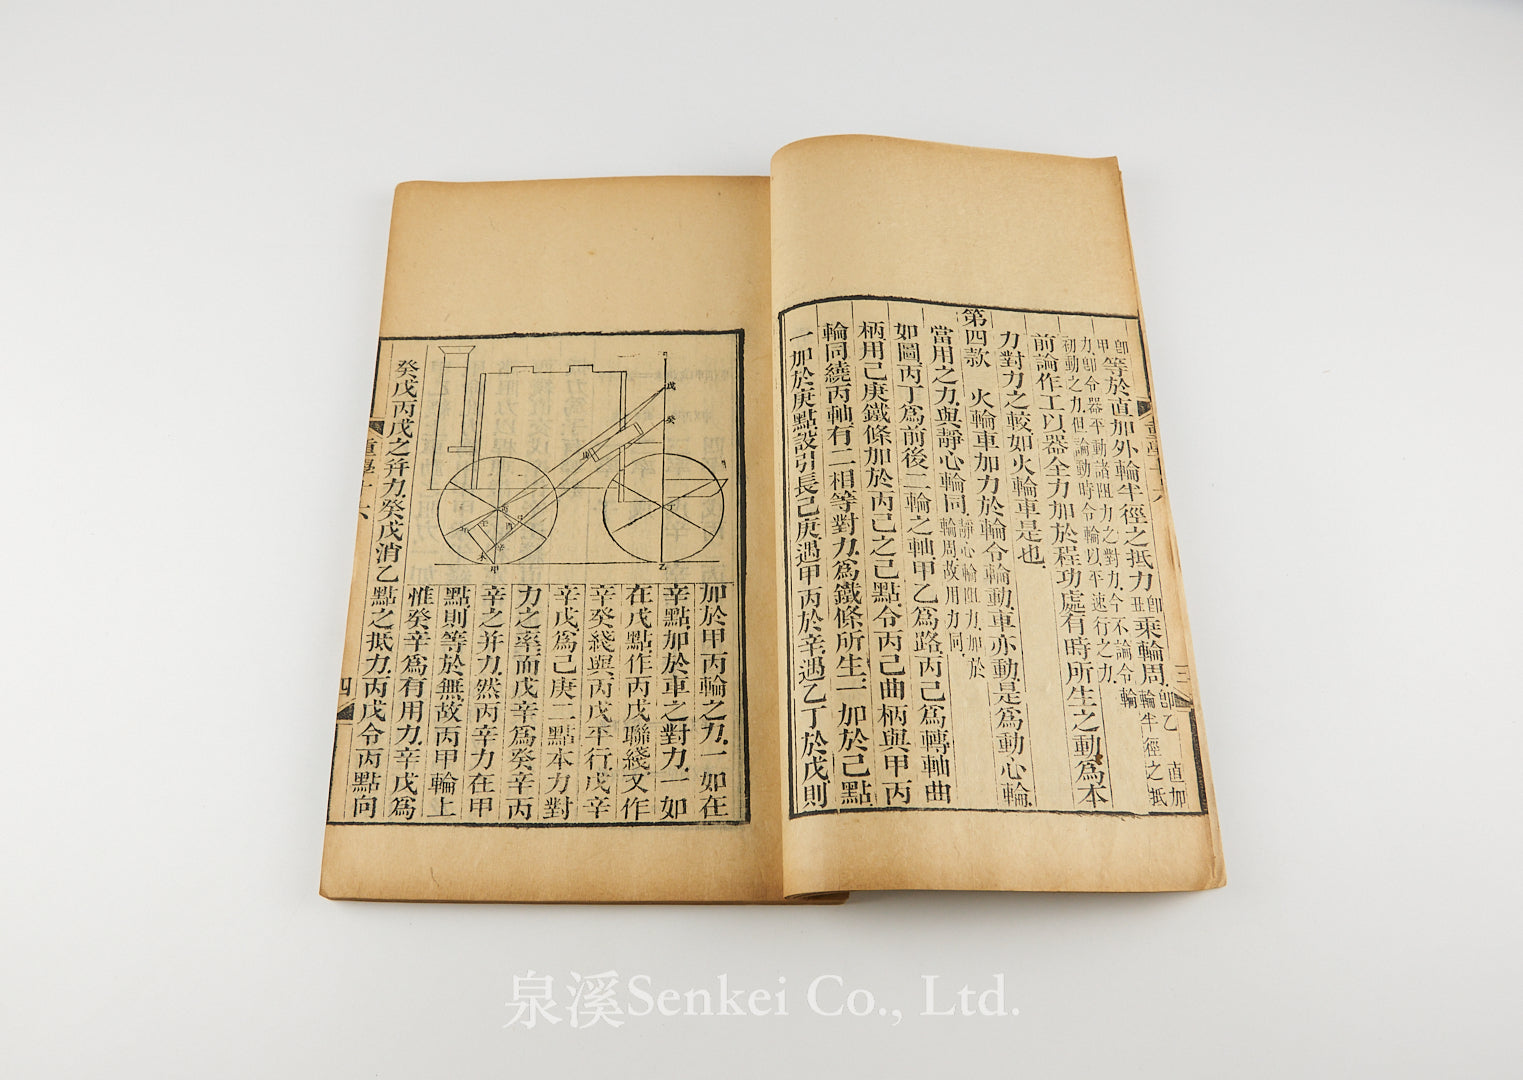 即等於直加外輪半徑之抵力即乘輪周即乙直加
甲力即令器平動諸阻力之對力今不論令輪
初動之力但論動時令輪以平速行之力輪半徑之抵
前論作工以器全力加於程功處有時所生之動爲本
力對力之較如火輪車是也
第四款 火輪車加力於輪令輪動車亦動是爲動心輪
當用之力與靜心輪同靜心輪阻力加於輪周故用力同
如圖丙丁爲前後二輪之軸甲乙爲路丙己爲轉軸曲
柄用己庚鐵條加於丙己之己點令丙己曲柄與甲丙
輪同繞丙軸有二相等對力爲鐵條所生一加於己點
一加於庚點設引長己庚遇甲丙於辛遇乙丁於戊則
三
戊
癸
丙
辛
甲
乙
丁
加於甲丙輪之力一如在
辛點加於車之對力一如
在戊點作丙戊聯綫又作
辛癸綫與丙戊平行戊辛
辛戊爲己庚二點本力對
力之率而戊辛爲癸辛丙
辛之并力然丙辛力在甲
點則等於無故丙甲輪上
惟癸辛爲有用力辛戊爲
癸戊丙戊之并力癸戊消乙點之抵力丙戊令丙點向
重學十六
四
泉溪Senkei Co., Ltd.